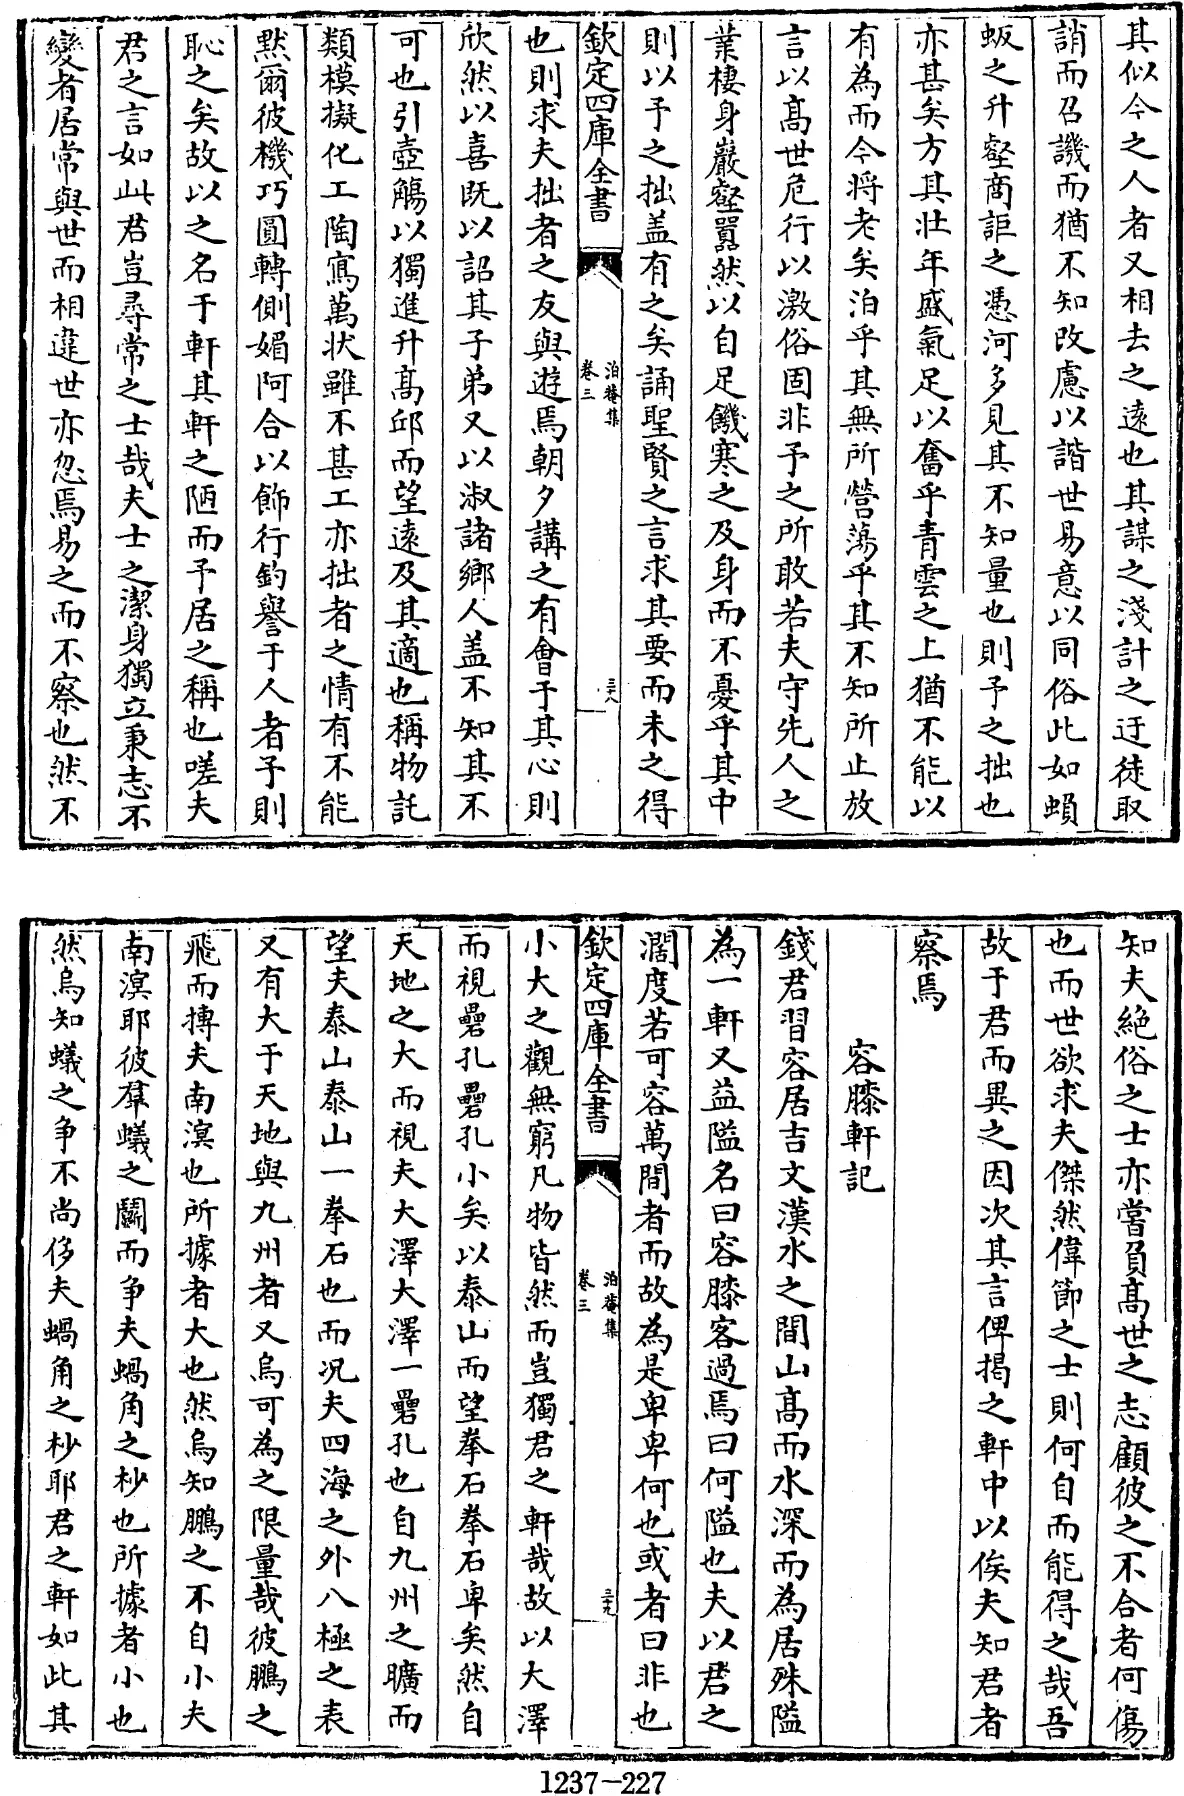 其似今之人者又相去之遠也其謀之淺計之迂徒取
誚而召譏而猶不知改慮以諧世易意以同俗此如蝜
蝂之升壑商詎之憑河多見其不知量也則予之拙也
亦甚矣方其壯年盛氣足以奮乎青雲之上猶不能以
有為而今将老矣泊乎其無所營蕩乎其不知所止放
言以高世危行以激俗固非予之所敢若夫守先人之
業棲身巖壑嚚然以自足饑寒之及身而不憂乎其中
則以予之拙盖有之矣誦聖賢之言求其要而未之得
欽定四庫全書
泊菴集
卷三
三十八
也則求夫拙者之友與遊焉朝夕講之有會于其心則
欣然以喜既以詔其子弟又以淑諸鄉人盖不知其不
可也引壺觴以獨進升高邱而望遠及其適也稱物託
類模擬化工陶寫萬状雖不甚工亦拙者之情有不能
黙爾彼機巧圓轉側媚阿合以飾行釣譽于人者予則
恥之矣故以之名于軒其軒之陋而予居之稱也嗟夫
君之言如此君豈尋常之士哉夫士之潔身獨立秉志不
變者居常與世而相違世亦忽焉易之而不察也然不
知夫絶俗之士亦嘗負高世之志顧彼之不合者何傷
也而世欲求夫傑然偉節之士則何自而能得之哉吾
故于君而異之因次其言俾揭之軒中以俟夫知君者
察焉
容膝軒記
錢君習容居吉文漢水之間山高而水深而為居殊隘
為一軒又益隘名曰容膝客過焉曰何隘也夫以君之
濶度若可容萬間者而故為是卑卑何也或者曰非也
欽定四庫全書
泊菴集
卷三
三十九
小大之觀無窮凡物皆然而豈獨君之軒哉故以大澤
而視礨孔礨孔小矣以泰山而望拳石拳石卑矣然自
天地之大而視夫大澤大澤一礨孔也自九州之曠而
望夫泰山泰山一拳石也而况夫四海之外八極之表
又有大于天地與九州者又烏可為之限量哉彼鵬之
飛而摶夫南溟也所據者大也然烏知鵬之不自小夫
南溟耶彼羣蟻之鬭而争夫蝸角之杪也所據者小也
然烏知蟻之争不尚侈夫蝸角之杪耶君之軒如此其
1237-227